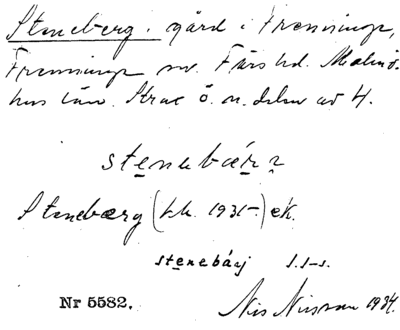 Steneberg. gård i Frenninge,
Frenninge sn. Färs hd. Malmö-
hus län. Strax ö. n. delen av H.
stenebär?
Steneberg (hk. 1931-) ek.
stenebárj s.s-s.
Nr 5582. Nils Nilsson 1934.